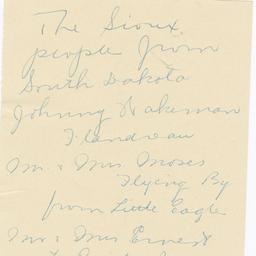 The Sioux
people from
South Dakota
Johnny Wakeman
Flandreau
Mr. & Mrs Moses
Flying By
from Little Eagle
Mr & Mrs Ernest